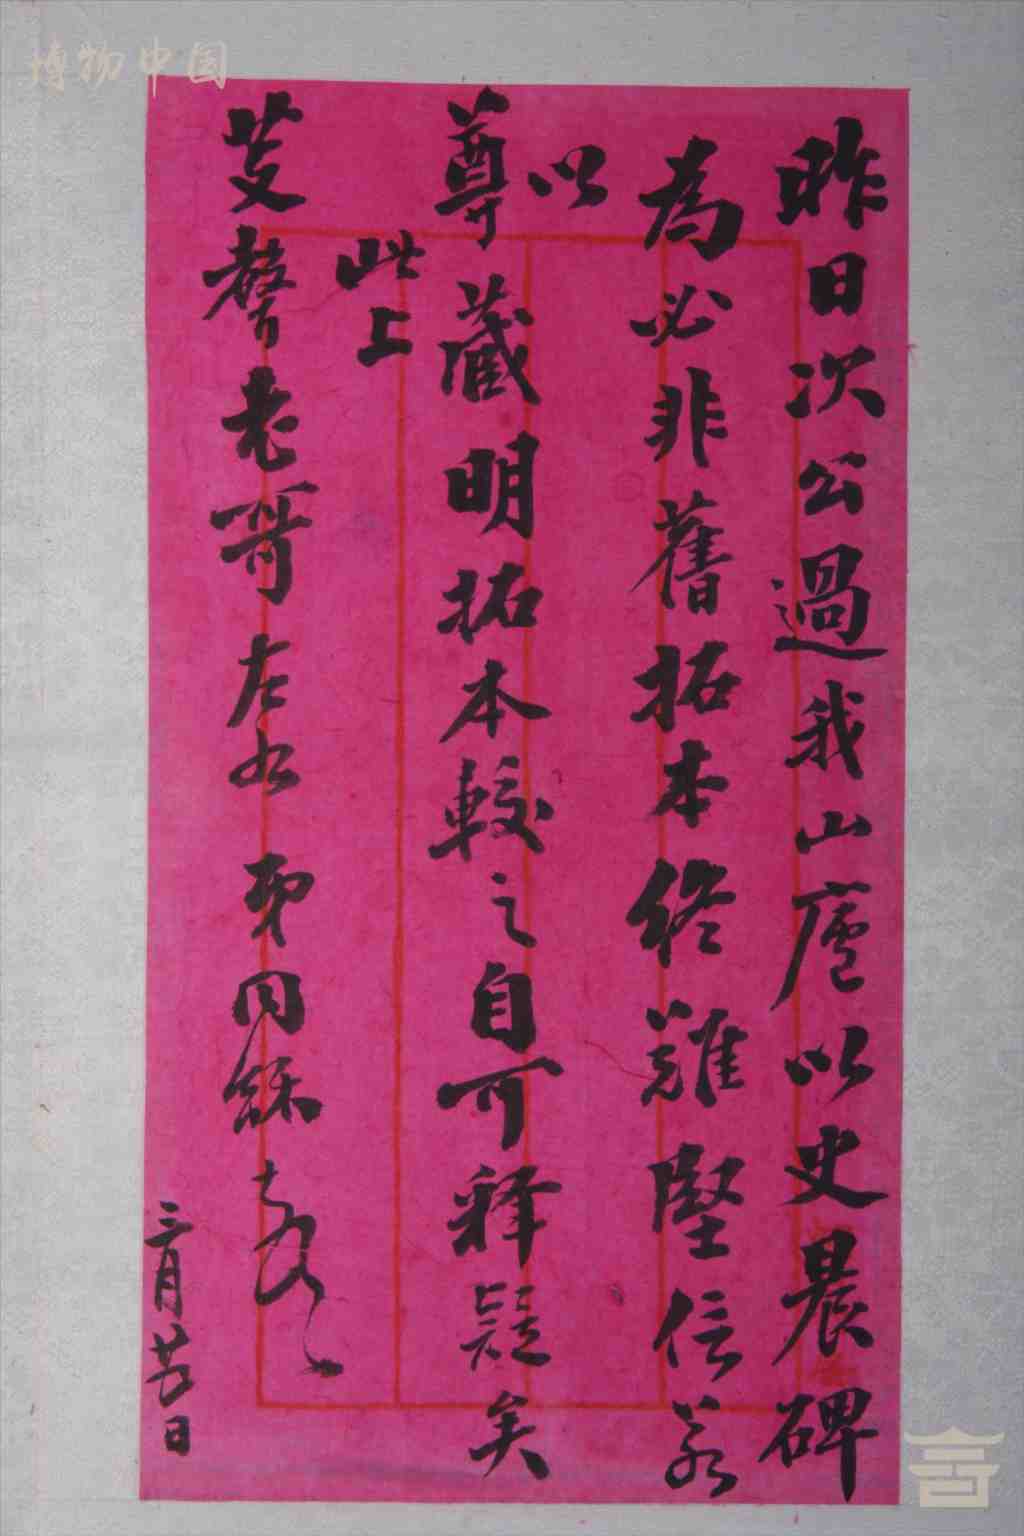 博物中国
昨日次公過我山廬以史晨碑
為必非舊拓本終難堅信若
以
尊藏明拓本較之自可釋疑矣
此上
老哥左右 弟同龢頓首
三月日